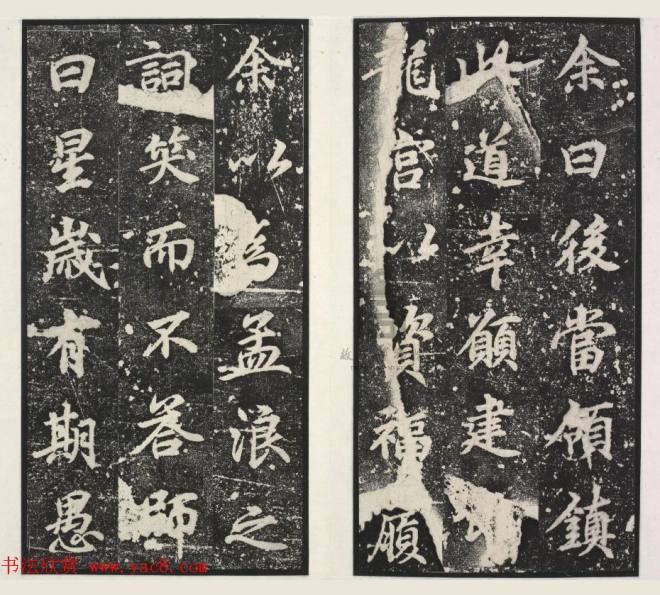 余曰後當領鎮
此道幸願建
龍宮以資福願
余以為孟浪之
詞笑而不答師
曰星歲有期愚
书法欣赏 www.yac8.com